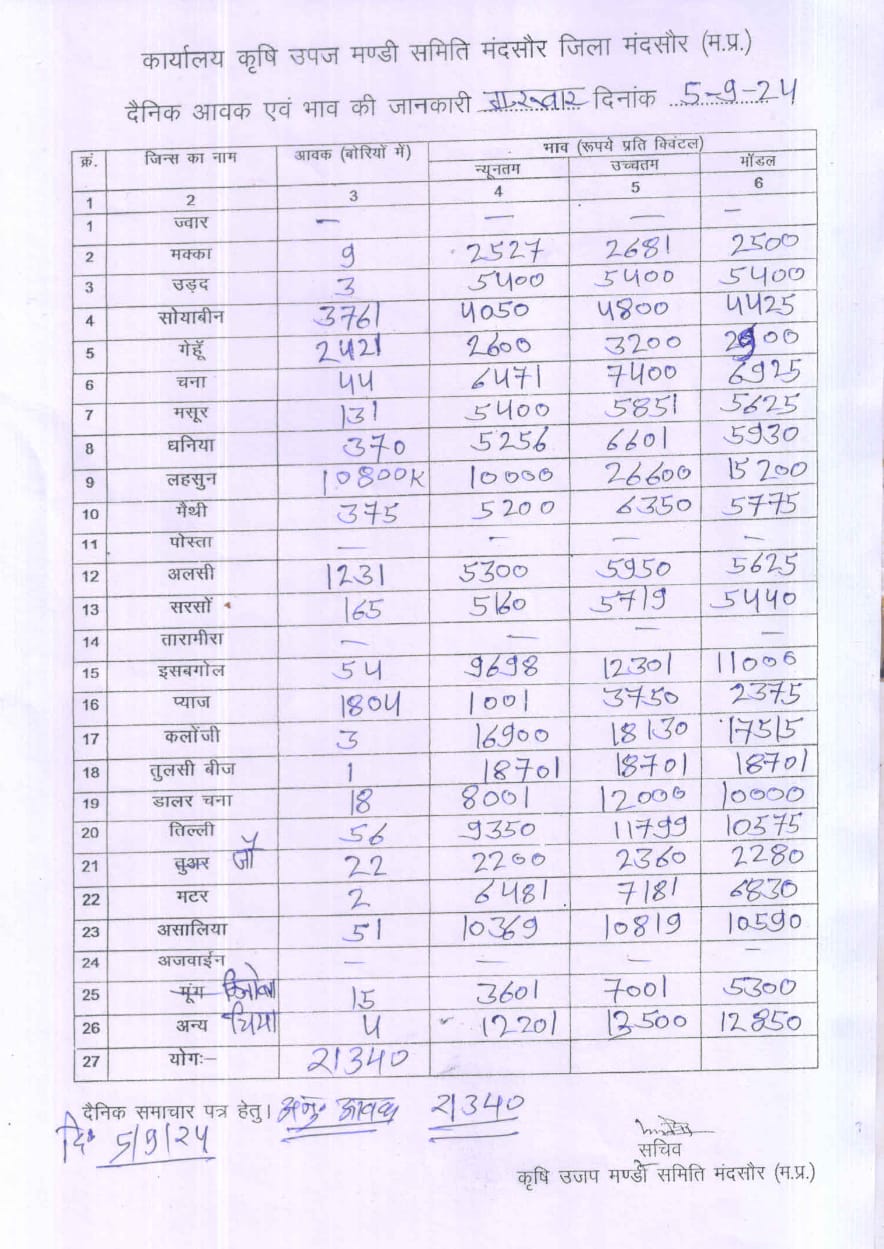 कार्यालय कृषि उपज मण्डी समिति मंदसौर जिला मंदसौर (म.प्र.)
दैनिक आवक एवं भाव की जानकारी गुरूवार दिनांक 5-9-24
क्रं. जिन्स का नाम आवक (बोरियों में) भाव (रूपये प्रति क्विंटल)
न्यूनतम उच्चतम मॉडल
1 2 3 4 5 6
1 ज्वार — — — —
2 मक्का 9 2527 2681 2500
3 उड़द 3 5400 5400 5400
4 सोयाबीन 3761 4050 4800 4425
5 गेहूॅ 2421 2600 3200 2900
6 चना 44 6471 7400 6925
7 मसूर 131 5400 5851 5625
8 धनिया 370 5256 6601 5930
9 लहसुन 10800K 10000 26600 15200
10 मैथी 375 5200 6350 5775
11 पोस्ता — — — —
12 अलसी 1231 5300 5950 5625
13 सरसों 165 5160 5719 5440
14 तारामीरा — — — —
15 इसबगोल 54 9698 12301 11000
16 प्याज 1804 1001 3750 2375
17 कलोंजी 3 16900 18130 17515
18 तुलसी बीज 1 18701 18701 18701
19 डालर चना 18 8001 12000 10000
20 तिल्ली 56 9350 11799 10575
21 तुअर जौ 22 2200 2360 2280
22 मटर 2 6481 7181 6830
23 असालिया 51 10369 10819 10590
24 अजवाईन — — — —
25 मूंग 15 3601 7001 5300
26 अन्य चिया 4 12201 13500 12850
27 योगः– 21340
दैनिक समाचार पत्र हेतु। अनु. आवक 21340
दि. 5/9/24
सचिव
कृषि उजप मण्डी समिति मंदसौर (म.प्र.)